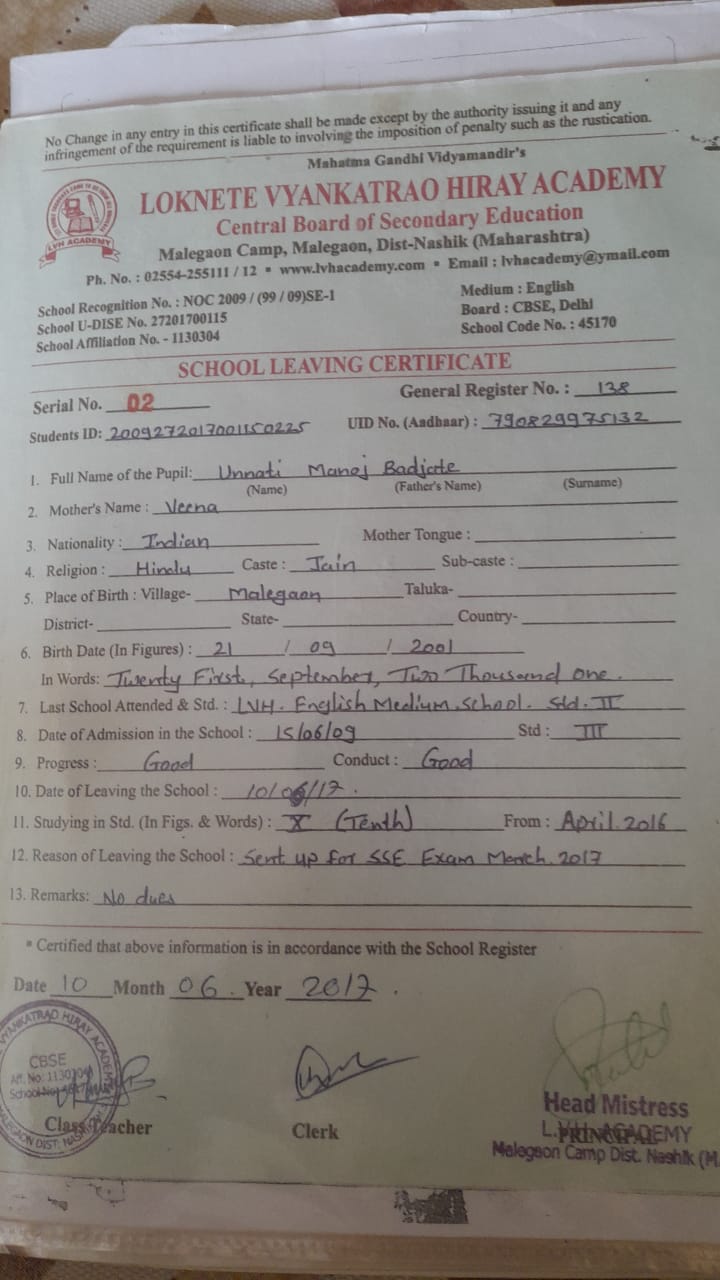 No Change in any entry in this certificate shall be made except by the authority issuing it and any
infringement of the requirement is liable to involving the imposition of penalty such as the rustication.
Mahatma Gandhi Vidyamandir's
LOKNETE VYANKATRAO HIRAY ACADEMY
LVH ACADEMY
Central Board of Secondary Education
Malegaon Camp, Malegaon, Dist-Nashik (Maharashtra)
Ph. No. : 02554-255111 / 12 • www.lvhacademy.com • Email : lvhacademy@ymail.com
School Recognition No. : NOC 2009 / (99 / 09)SE-1 Medium : English
School U-DISE No. 27201700115 Board : CBSE, Delhi
School Affiliation No. - 1130304 School Code No. : 45170
SCHOOL LEAVING CERTIFICATE
Serial No. 02 General Register No. : 138
Students ID: 2009272017001150225 UID No. (Aadhaar) : 790829975132
1. Full Name of the Pupil: Unnati Manoj Badjate
(Name) (Father's Name) (Surname)
2. Mother's Name : Veena
3. Nationality : Indian Mother Tongue :
4. Religion : Hindu Caste : Jain Sub-caste :
5. Place of Birth : Village- Malegaon Taluka-
District- State- Country-
6. Birth Date (In Figures) : 21 / 09 / 2001
In Words: Twenty First, September, Two Thousand one.
7. Last School Attended & Std. : LVH. English Medium School. Std. II
8. Date of Admission in the School : 15/06/09 Std : III
9. Progress : Good Conduct : Good
10. Date of Leaving the School : 10/06/17.
11. Studying in Std. (In Figs. & Words) : X (Tenth) From : April. 2016
12. Reason of Leaving the School : Sent up for SSE Exam March. 2017
13. Remarks: No dues
* Certified that above information is in accordance with the School Register
Date 10 Month 06. Year 2017.
VYANKATRAO HIRAY ACADEMY
CBSE
Aff. No. 1130304
Class Teacher Clerk PRINCIPAL
Head Mistress
L.V.H. ACADEMY
Malegaon Camp Dist. Nashik (M.